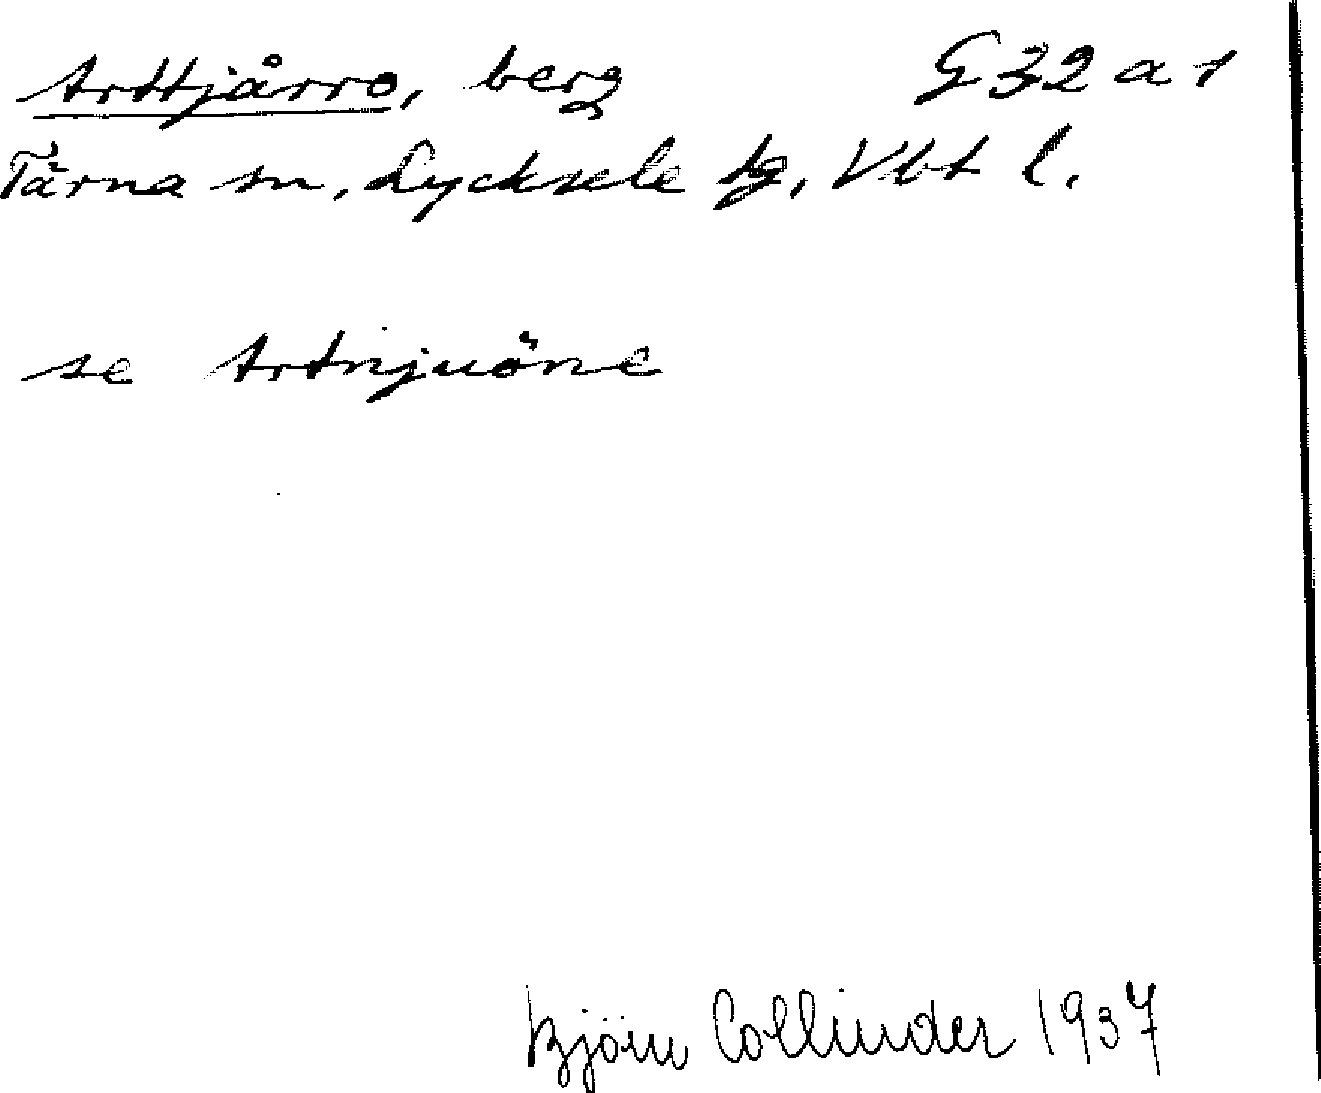 Arttjårro, berg G32a1
Tärna sn, Lycksele tg, Vbt l.
se Artnjuöne
Björn Collinder 1937